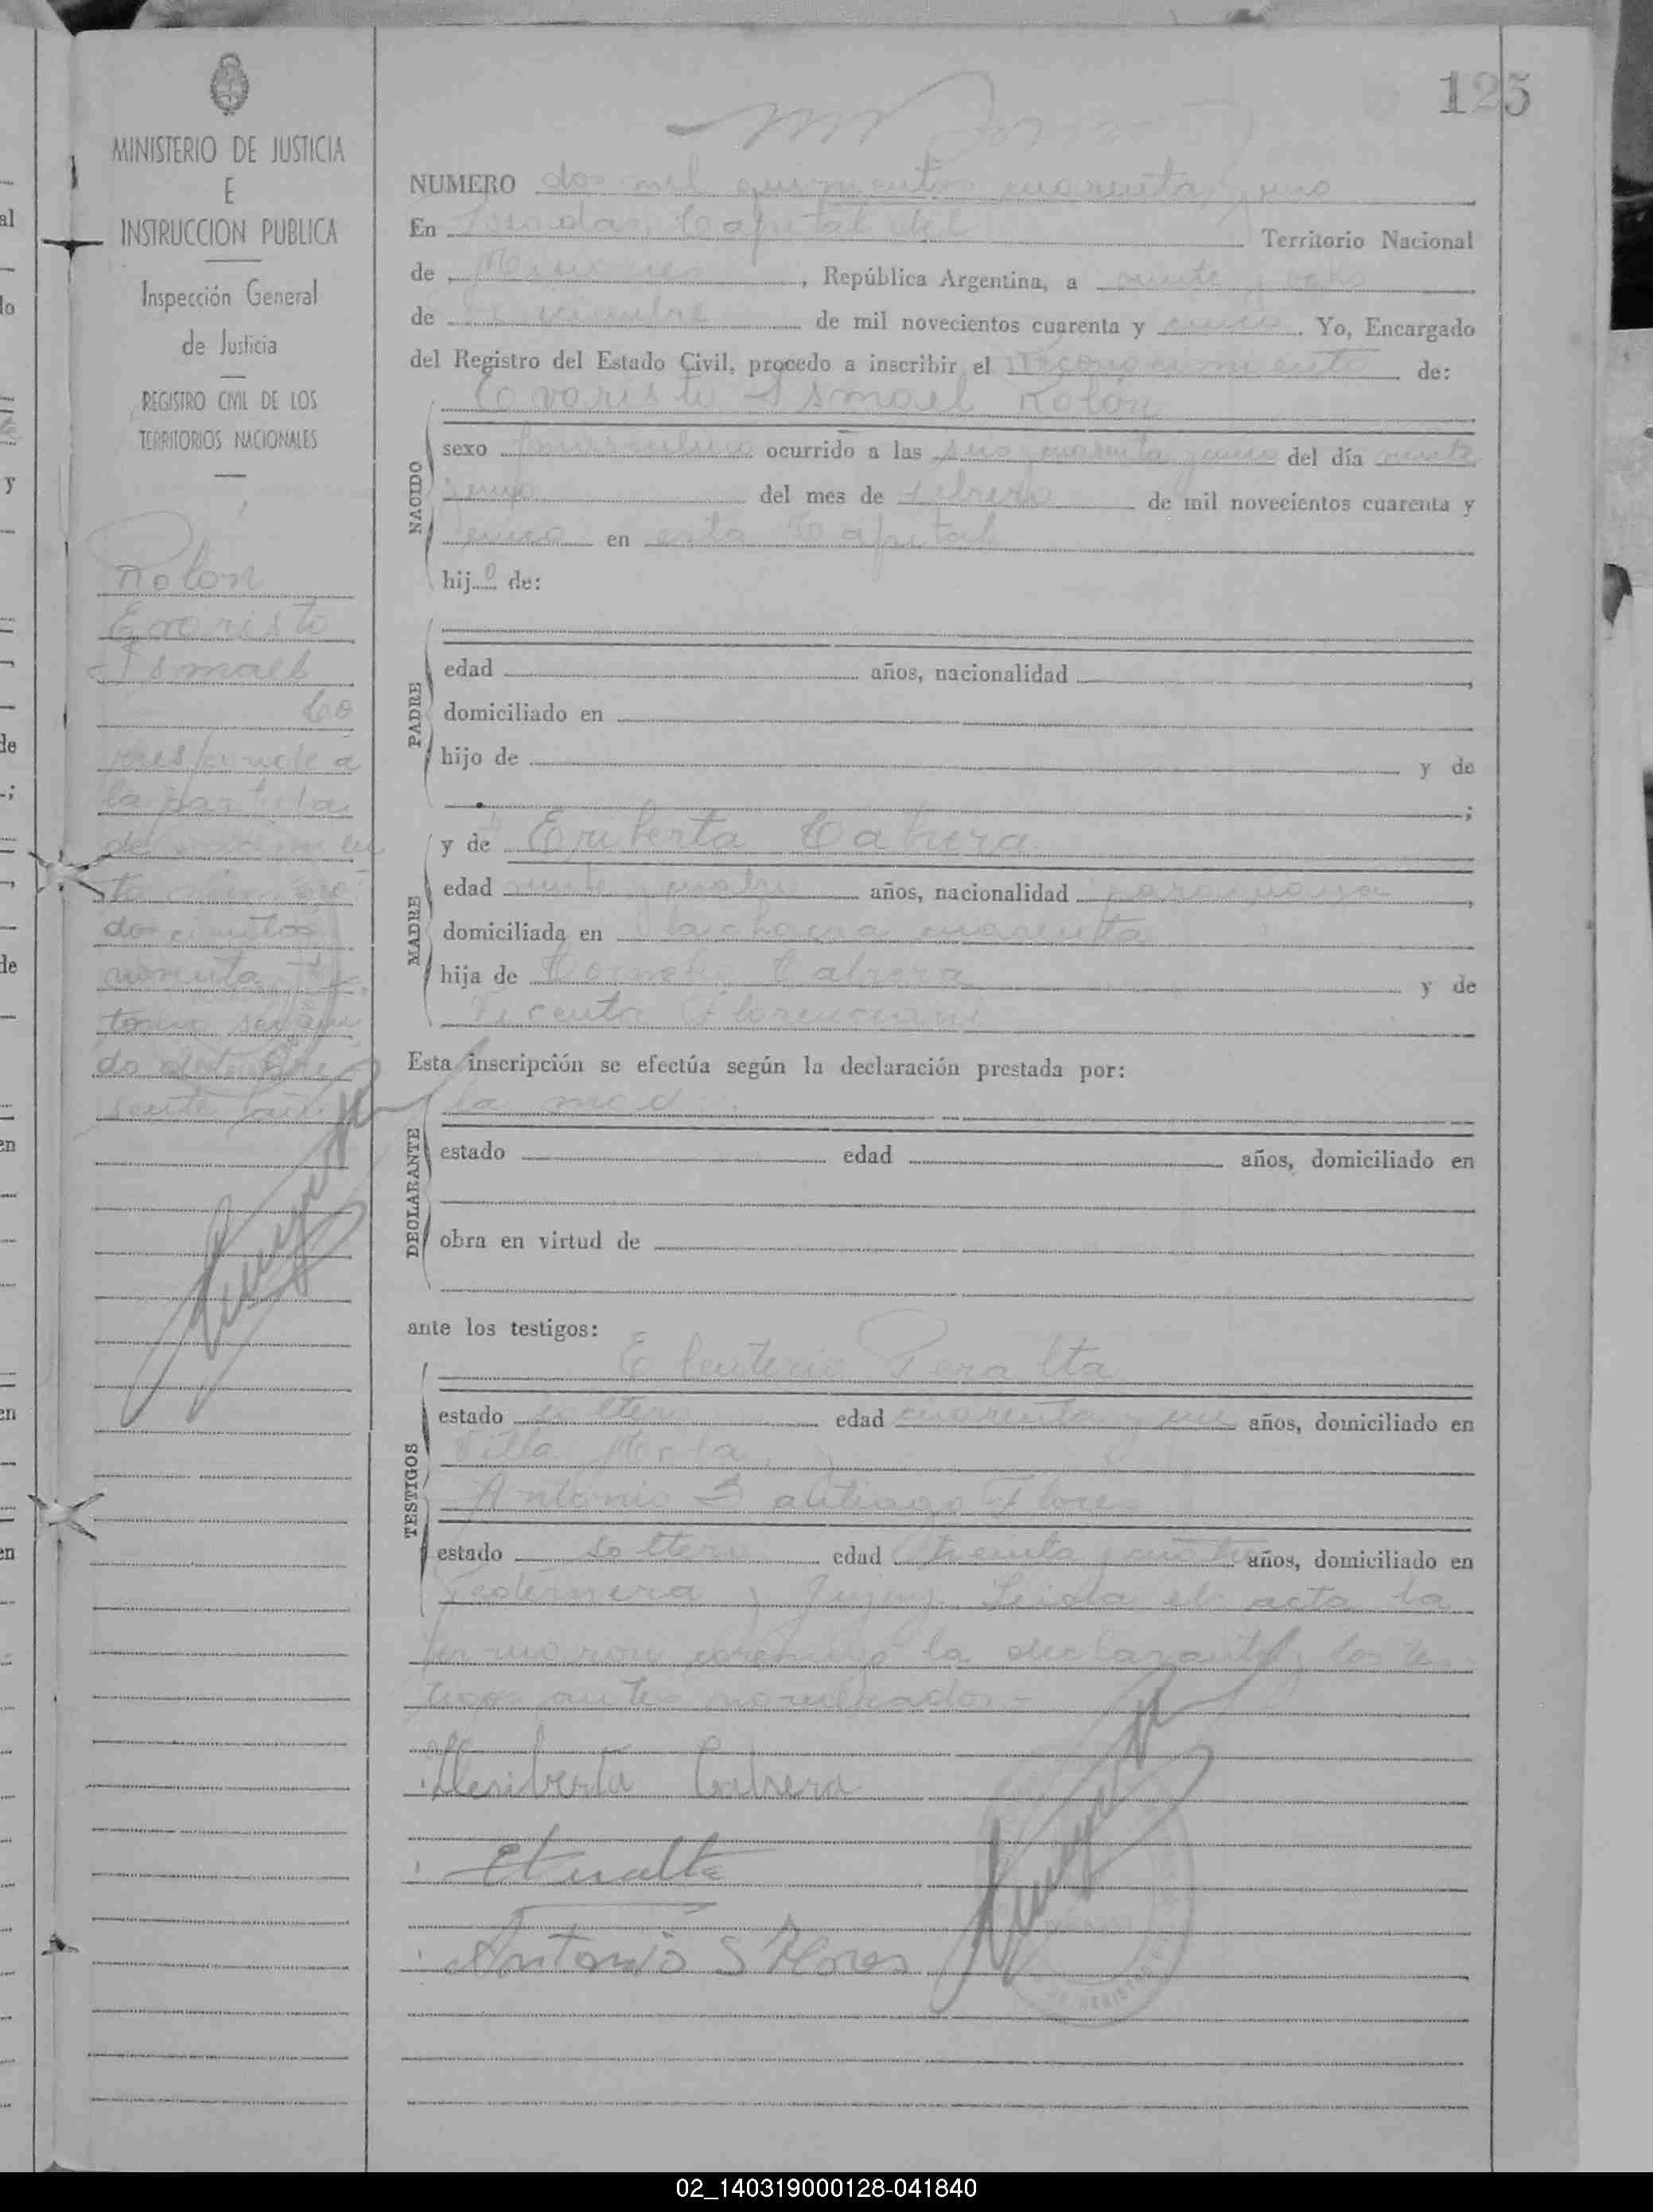 125
MINISTERIO DE JUSTICIA
E
INSTRUCCION PUBLICA
Inspección General
de Justicia
REGISTRO CIVIL DE LOS
TERRITORIOS NACIONALES
Rolon
Evaristo
Ismael
Co
rresponde a
la partida
dos cientos
noventa
tomo segun
do
NUMERO dos mil quinientos cuarenta y uno
En Posadas, Capital del Territorio Nacional
de Misiones, República Argentina, a veinte y ocho
de diciembre de mil novecientos cuarenta y cinco. Yo, Encargado
del Registro del Estado Civil, procedo a inscribir el Reconocimiento de:
Evaristo Ismael Rolón
NACIDO
sexo masculino ocurrido a las del día veinte
del mes de febrero de mil novecientos cuarenta y
cinco en esta Capital
hij o de:
PADRE
edad años, nacionalidad ,
domiciliado en
hijo de y de
;
MADRE
y de Eriberta Cabrera
edad veinte y cuatro años, nacionalidad paraguaya,
domiciliada en la chacra cuarenta
hija de Cabrera y de
Vicenta
Esta inscripción se efectúa según la declaración prestada por:
DECLARANTE
la mad
estado edad años, domiciliado en
obra en virtud de
ante los testigos:
TESTIGOS
Eleuterio Peralta
estado soltero edad cuarenta y años, domiciliado en
Villa
Antonio Santiago Flores
estado soltero edad treinta y años, domiciliado en
Pedernera y Jujuy. Leida el acta la
firmaron conmigo la declarante y los tes
tigos antes nombrados.-
Heriberta Cabrera
EPeralta
Antonio S Flores
02_140319000128-041840